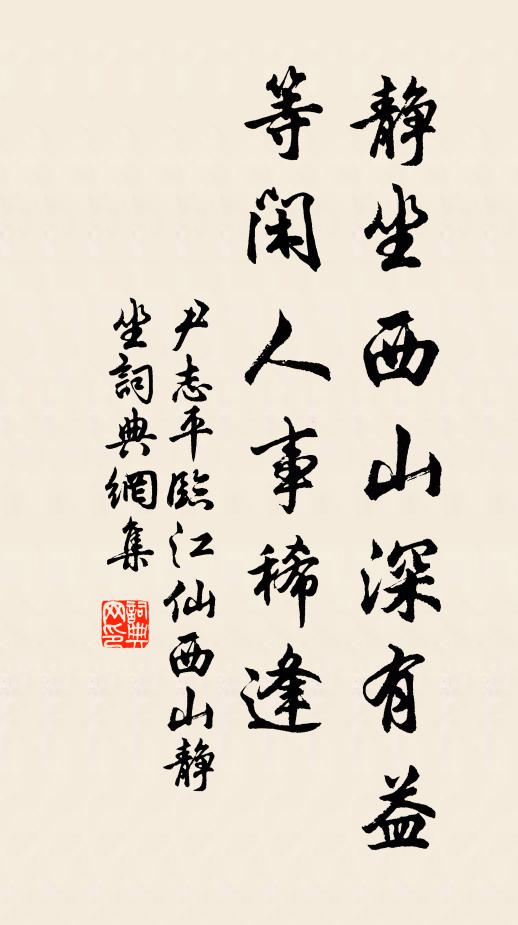 静坐西山深有益
等閑人事稀逢
尹志平臨江仙西山静
坐詞典網集
詞典网印